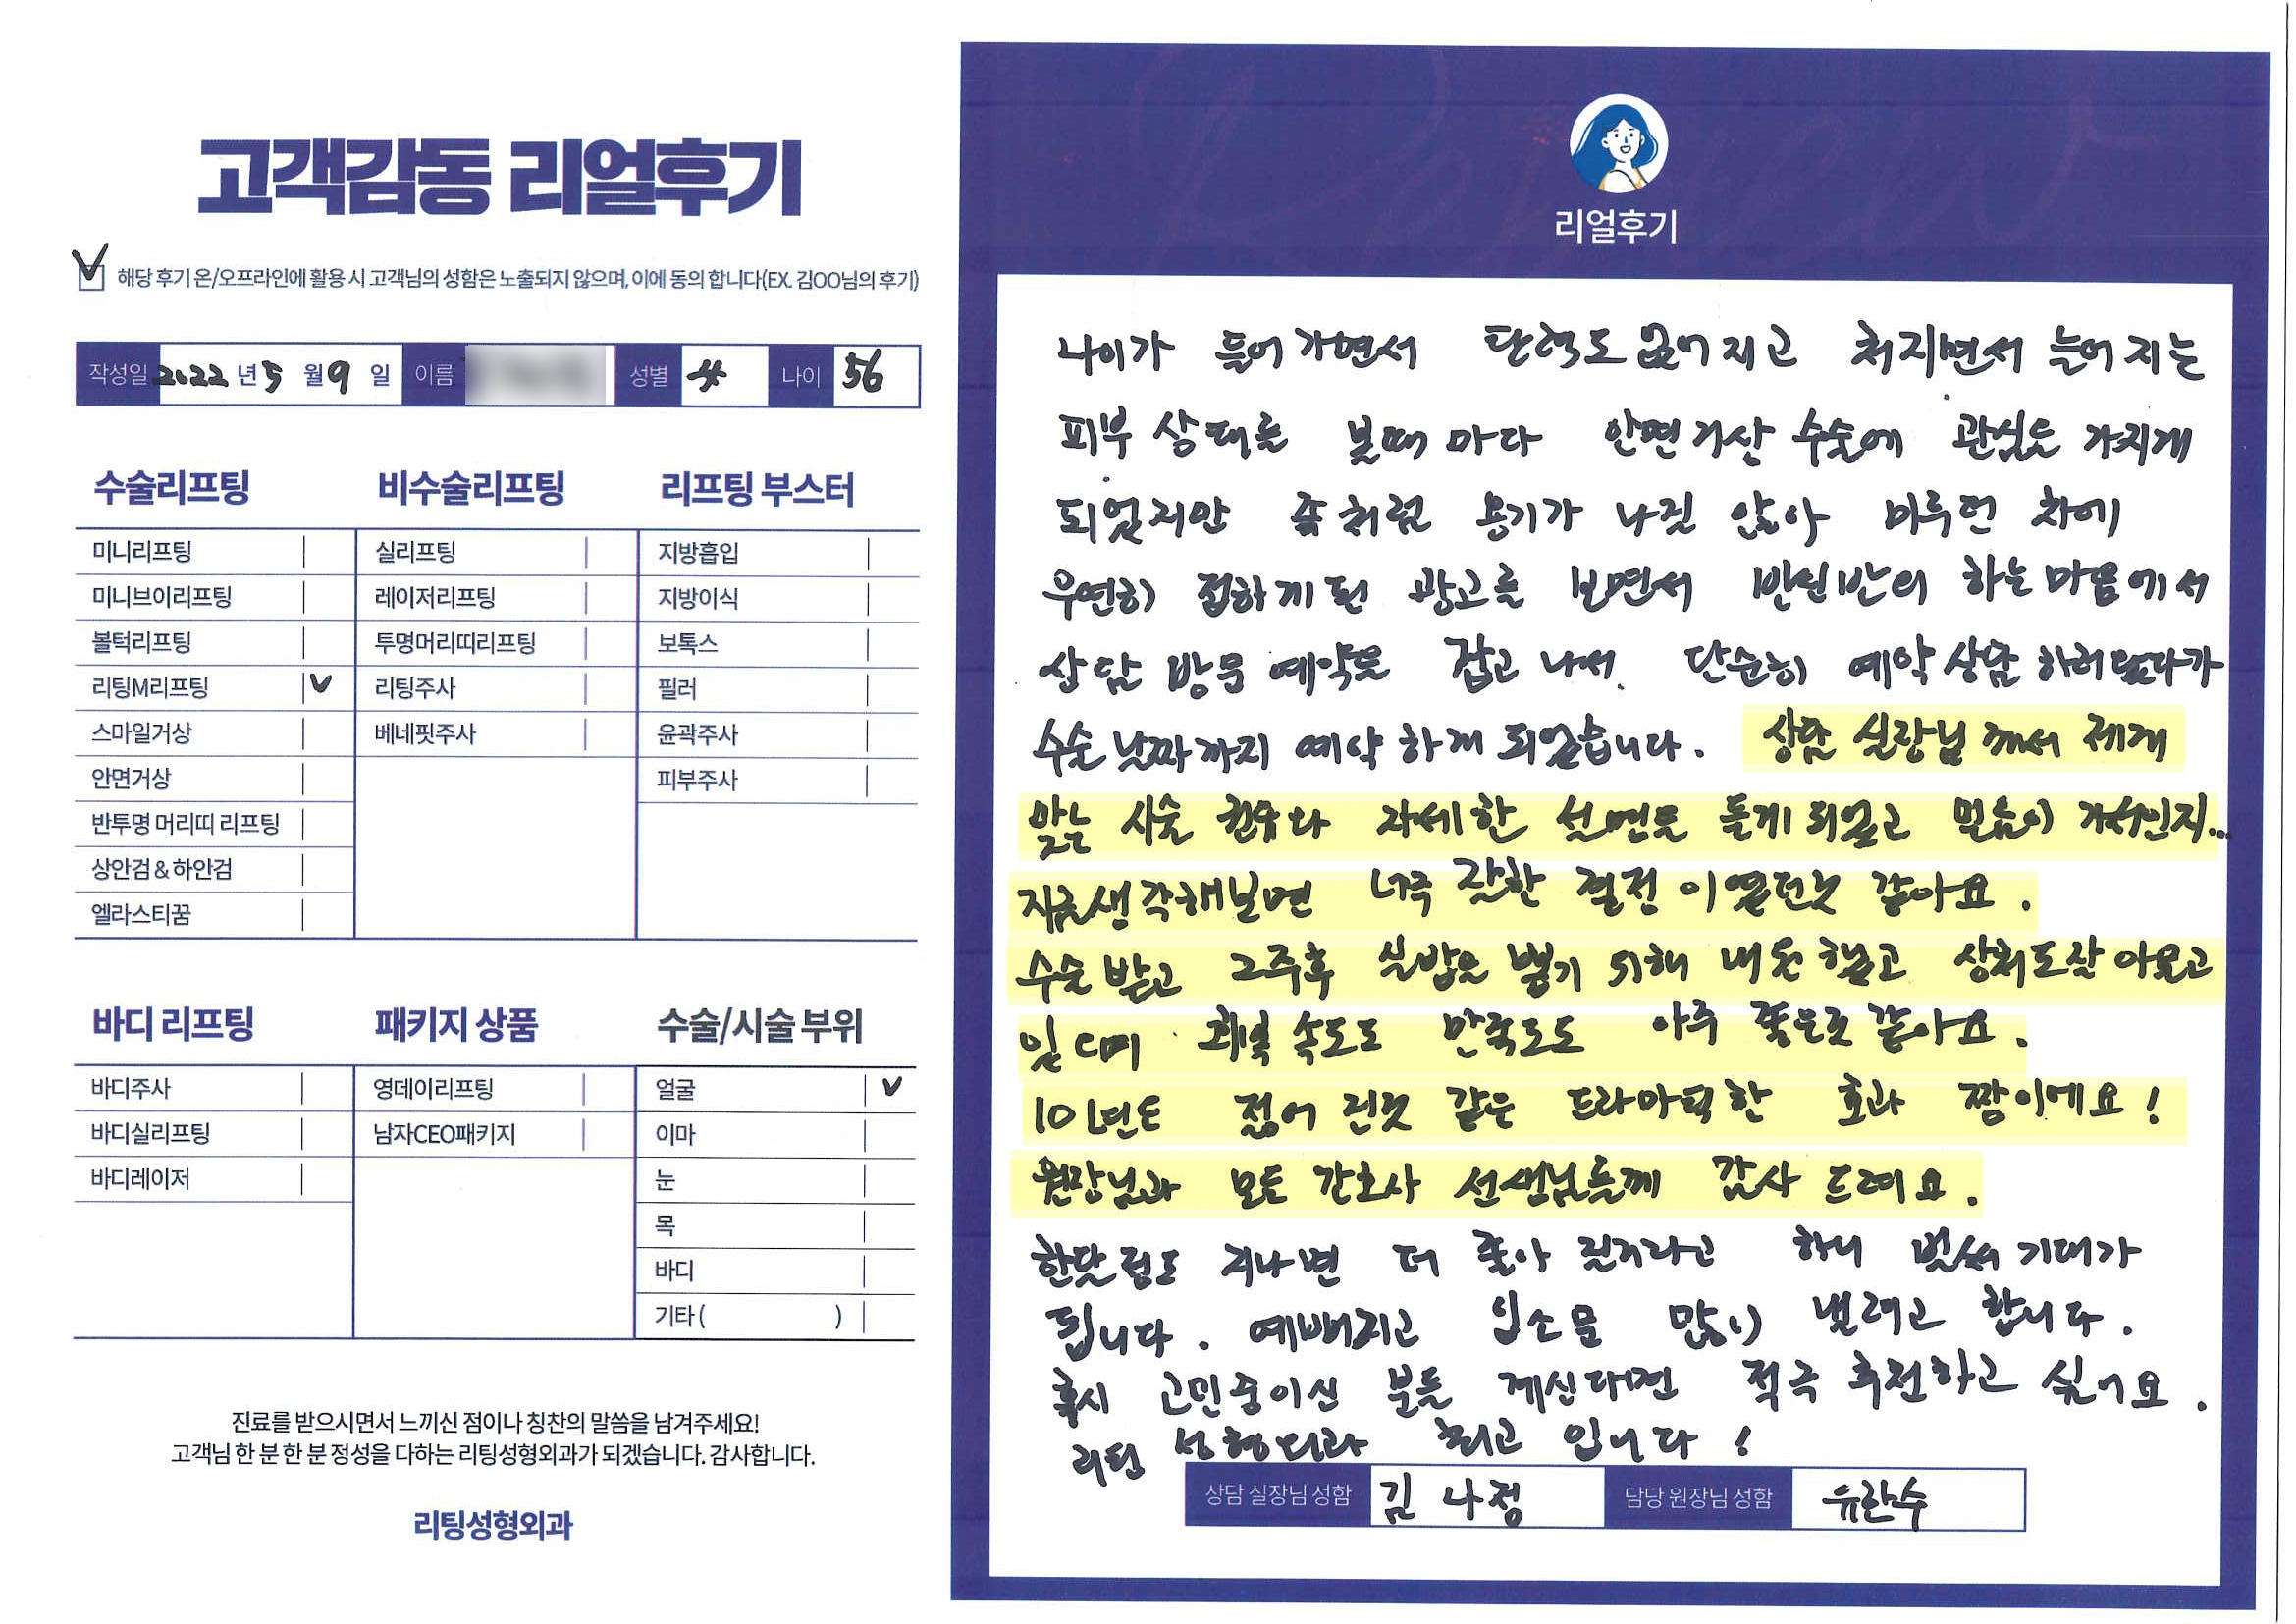 고객감동 리얼후기
해당 후기 온/오프라인에 활용 시 고객님의 성함은 노출되지 않으며, 이에 동의 합니다(EX. 김OO님의 후기)
작성일 2022 년 5 월 9 일 이름 성별 나이 56
수술리프팅
미니리프팅
미니브이리프팅
볼턱리프팅
리팅M리프팅 V
스마일거상
안면거상
반투명 머리띠 리프팅
상안검 & 하안검
엘라스티꿈
비수술리프팅
실리프팅
레이저리프팅
투명머리띠리프팅
리팅주사
베네핏주사
리프팅 부스터
지방흡입
지방이식
보톡스
필러
윤곽주사
피부주사
바디 리프팅
바디주사
바디실리프팅
바디레이저
패키지 상품
영데이리프팅
남자CEO패키지
수술/시술 부위
얼굴 V
이마
눈
목
바디
기타 ( )
진료를 받으시면서 느끼신 점이나 칭찬의 말씀을 남겨주세요!
고객님 한 분 한 분 정성을 다하는 리팅성형외과가 되겠습니다. 감사합니다.
리팅성형외과
리얼후기
나이가 들어가면서 탄력도 없어지고 처지면서 늘어지는
피부 상태를 볼때 마다 안면거상 수술에 관심을 가지게
되었지만 좀처럼 용기가 나질 않아 미루던 차에
우연히 접하게 된 광고를 보면서 반신반의 하는 마음에서
상담 방문 예약을 잡고 나서 단순히 예약 상담 하러 왔다가
수술 날짜까지 예약 하게 되었습니다. 상담 실장님께서 제게
맞는 시술 자세한 설명을 듣게 되었고 믿음이 가서인지...
지금생각해보면 너무 잘한 결정 이었던것 같아요.
수술 받고 2주후 실밥을 뽑기 위해 내원 했고 상처도 잘 아물고
있다며 회복 속도도 만족도도 아주 좋은것 같아요.
10년은 젊어 진것 같은 드라마틱한 효과 짱이에요!
원장님과 모든 간호사 선생님들께 감사 드려요.
한달 정도 지나면 더 좋아 진다라고 하니 벌써 기대가
됩니다. 예뻐지고 입소문 많이 낼려고 합니다.
혹시 고민중이신 분들 계신다면 적극 추천하고 싶어요.
리팅 성형외과 최고 입니다!
상담 실장님 성함 김 나정 담당 원장님 성함 유한수